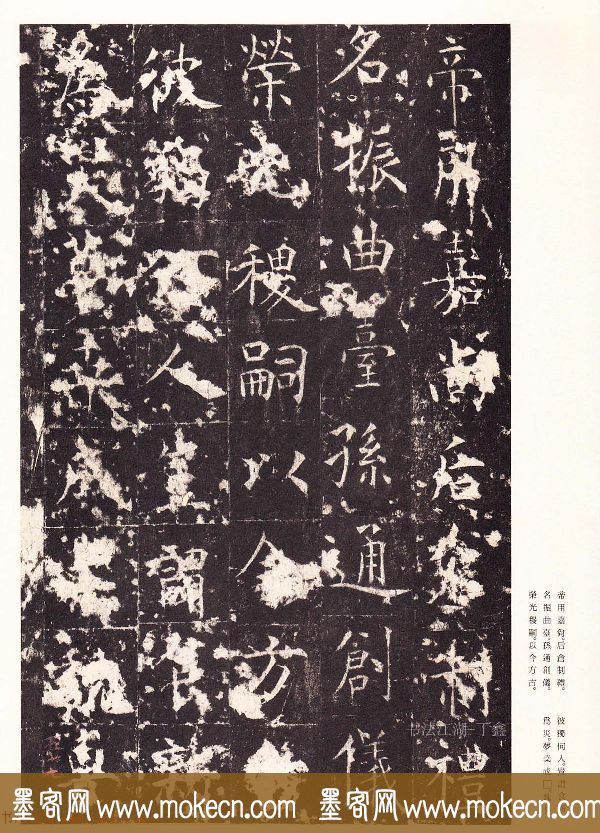 帝用嘉尚后倉制禮
名振曲臺孫通創儀
榮光稷嗣以今方
彼獨何人豈謂
帝用嘉尚。后倉制禮。
名振曲臺。孫通創儀。
榮光稷嗣。以今方古。
彼獨何人。豈謂
為災。夢奠成□
书法江湖-丁鑫
墨客网 www.mokecn.com 墨客网 www.mokecn.com